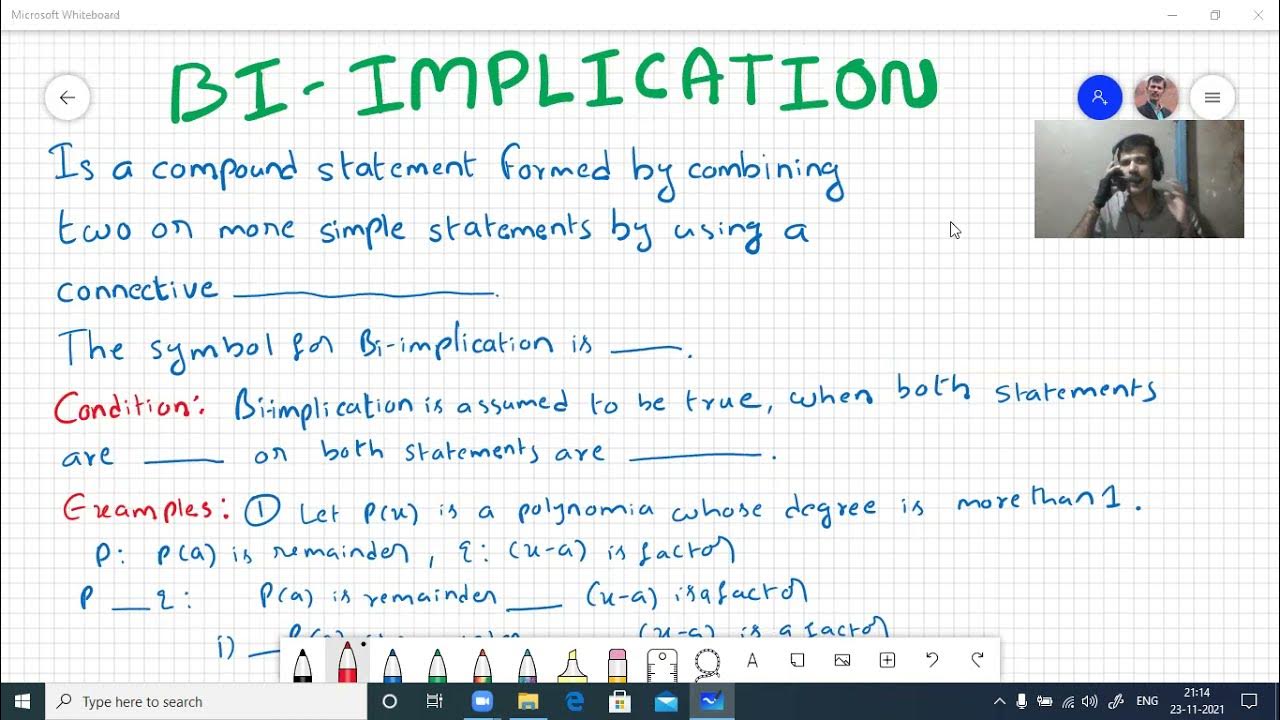 Microsoft Whiteboard
BI-IMPLICATION
Is a compound statement formed by combining
two or more simple statements by using a
connective ________.
The symbol for Bi-implication is ____.
Condition: Bi-implication is assumed to be true, when both statements
are ____ or both statements are ____.
Examples: ① Let P(x) is a polynomia whose degree is more than 1.
P: P(a) is remainder, q: (x-a) is factor
P __ q: P(a) is remainder ___ (x-a) is a factor
i) __ (x-a) is a factor
A
Type here to search
ENG
21:14
23-11-2021